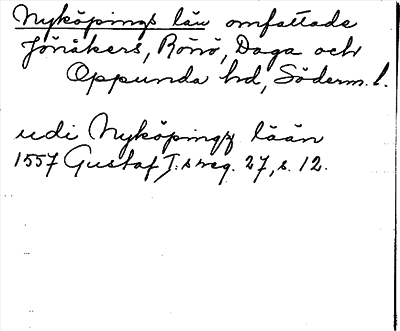 Nyköpings län omfattade
Jönåkers, Rönö, Daga och
Oppunda hd, Söderm. l.
udi Nyköpingz lään
1557 Gustaf I:s reg. 27, s. 12.